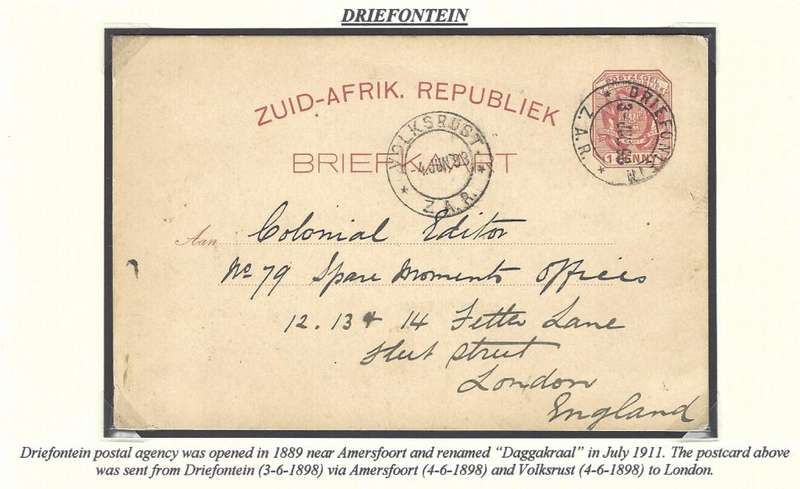 DRIEFONTEIN
ZUID-AFRIK. REPUBLIEK
POSTZEGEL
1 PENNY
DRIEFONTEIN
Z.A.R.
VOLKSRUST.
4 JUN.98
Z.A.R.
BRIEFKAART
Aan Colonial Editor
No 79 Spare Moments Offices
12. 13 & 14 Fetter Lane
Fleet Street
London
England
Driefontein postal agency was opened in 1889 near Amersfoort and renamed “Daggakraal” in July 1911. The postcard above
was sent from Driefontein (3-6-1898) via Amersfoort (4-6-1898) and Volksrust (4-6-1898) to London.